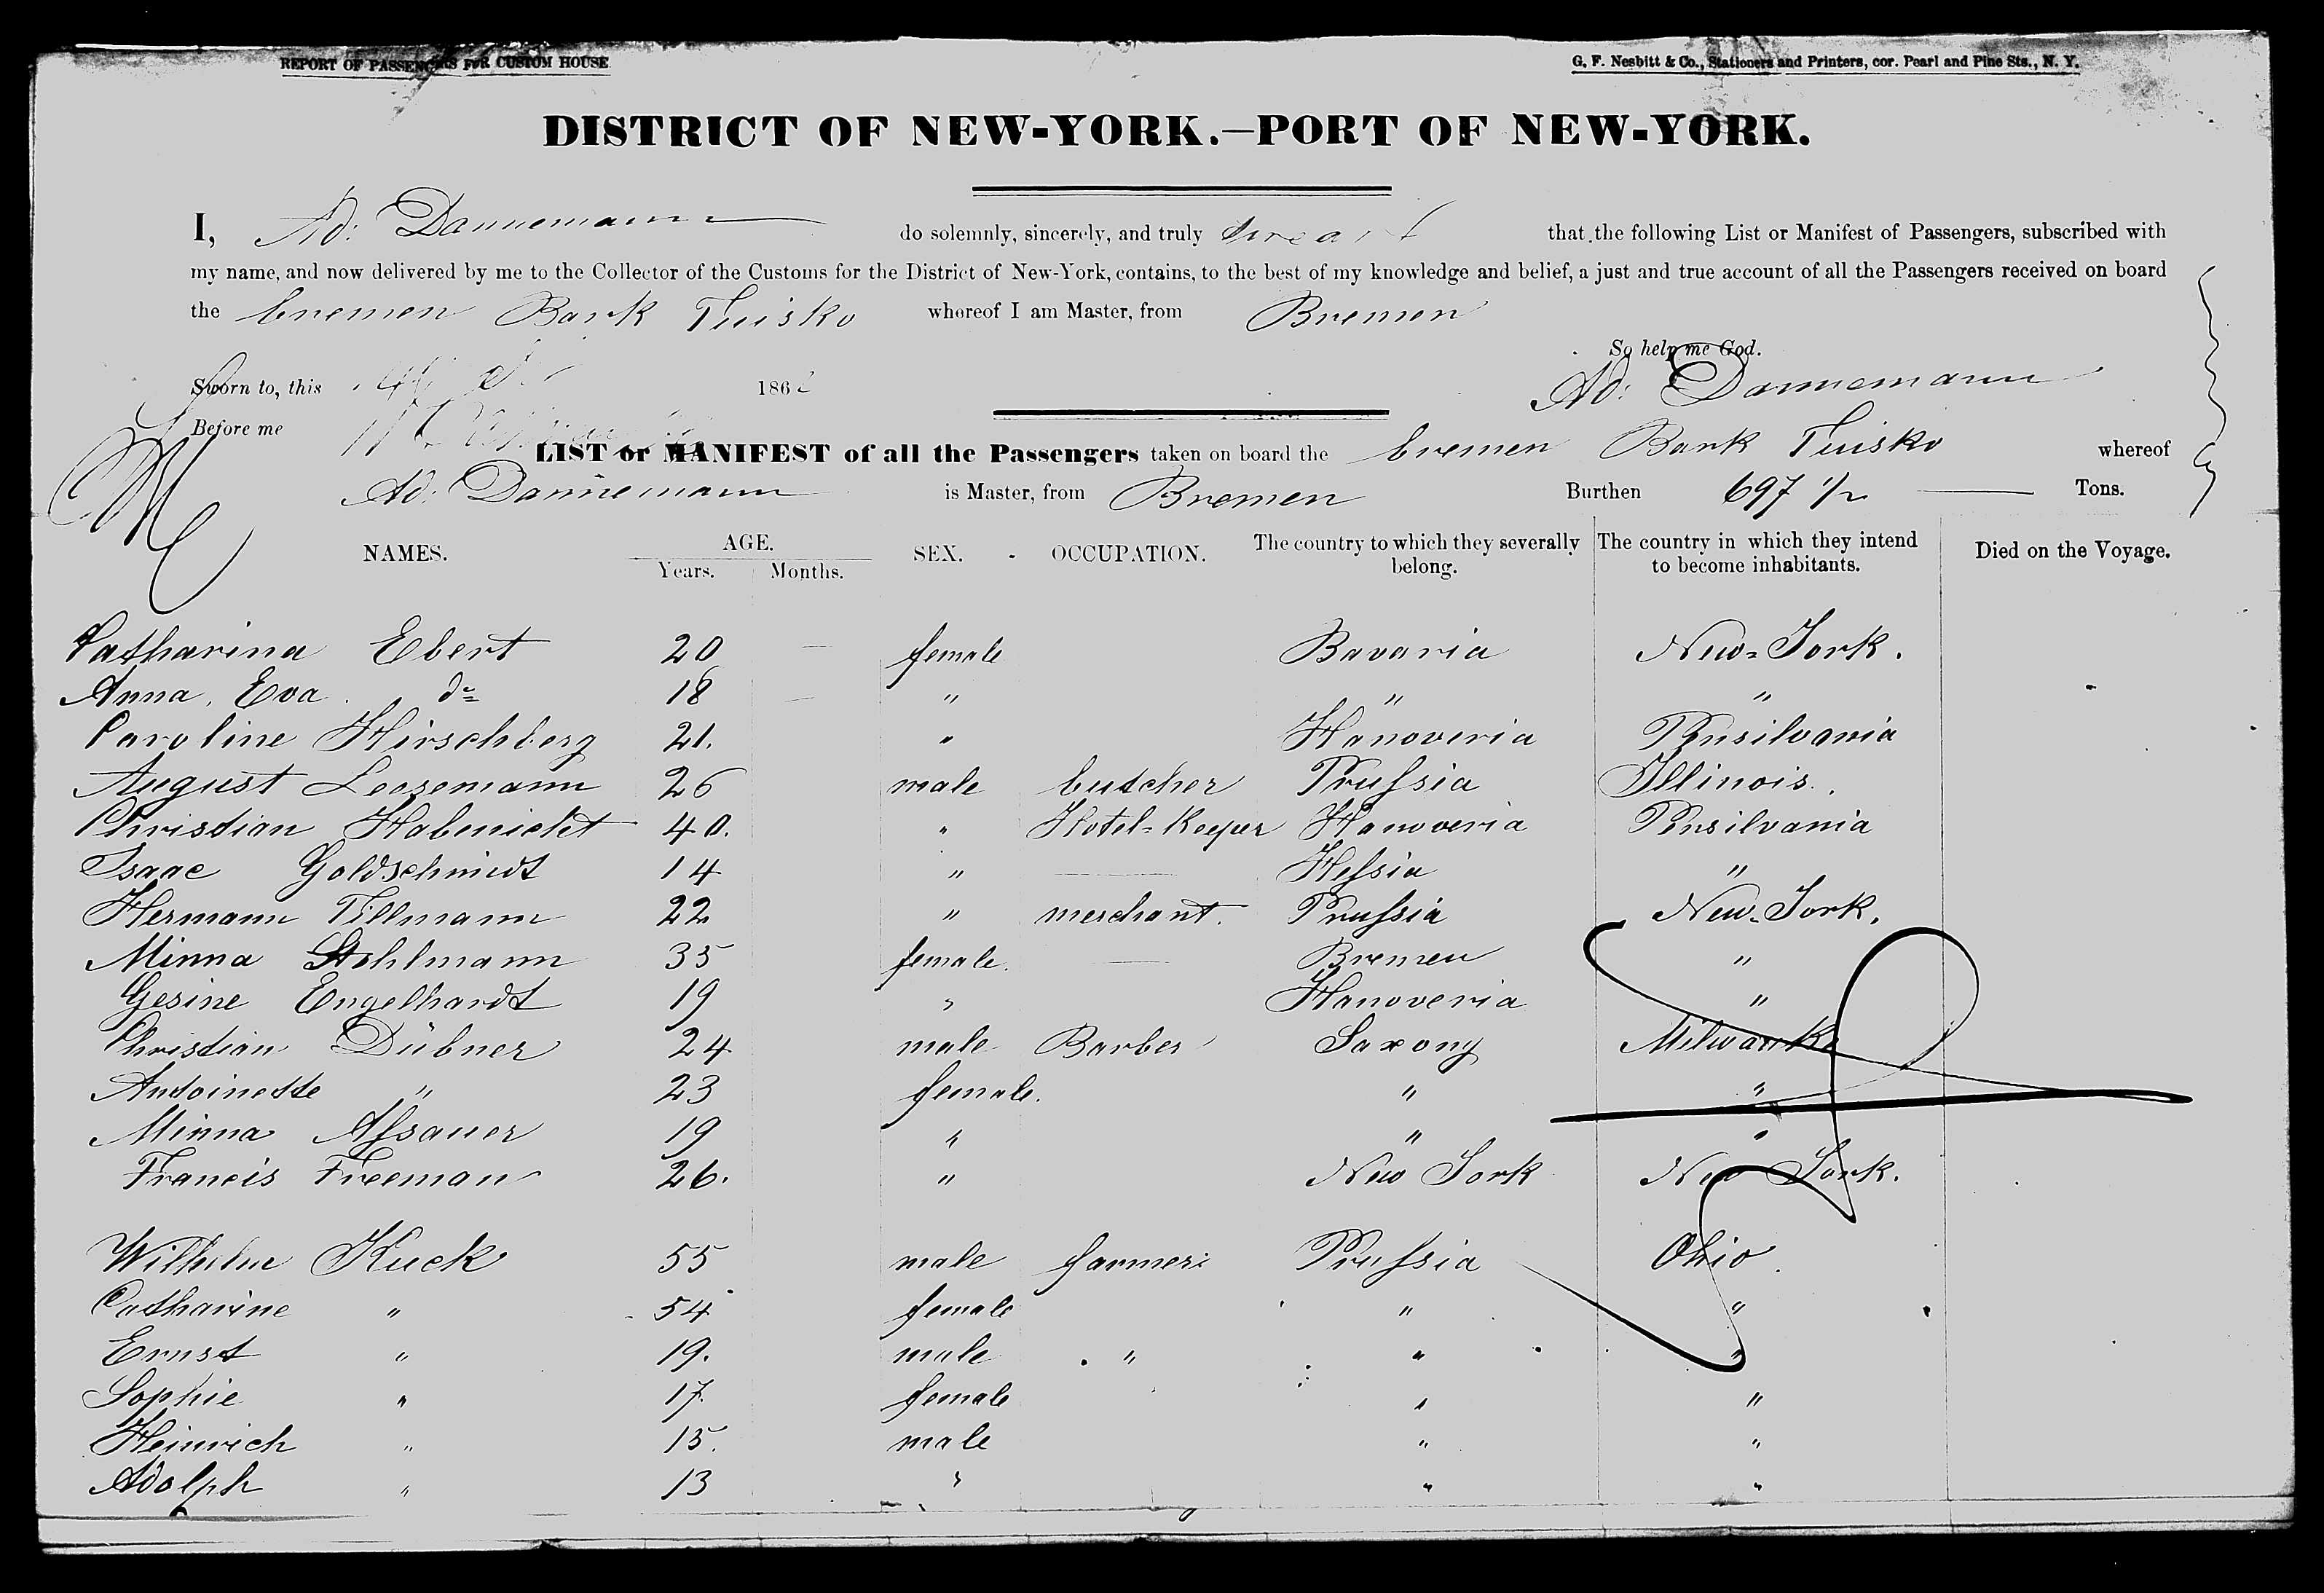 REPORT OF PASSENGERS FOR CUSTOM HOUSE
G. F. Nesbitt & Co., Stationers and Printers, cor. Pearl and Pine Sts., N. Y.
DISTRICT OF NEW-YORK.—PORT OF NEW-YORK.
I, Ad: Dannemann do solemnly, sincerely, and truly swear that the following List or Manifest of Passengers, subscribed with
my name, and now delivered by me to the Collector of the Customs for the District of New-York, contains, to the best of my knowledge and belief, a just and true account of all the Passengers received on board
the bremen Bark Tuisko whereof I am Master, from Bremen
So help me God.
Sworn to, this 1862 Ad: Dannemann
Before me
LIST or MANIFEST of all the Passengers taken on board the bremen Bark Tuisko whereof
Ad: Dannemann is Master, from Bremen Burthen 697 1/2 Tons.
NAMES. AGE. Years. Months. SEX. OCCUPATION. The country to which they severally belong. The country in which they intend to become inhabitants. Died on the Voyage.
Catharina Ebert 20 — female Bavaria New-York.
Anna, Eva do 18 — " " "
Caroline Hirschberg 21. " Hanoveria Pensilvania
August Leosemann 26 male butcher Prussia Illinois.
Christian Habenicht 40. " Hotel-Keeper Hanoveria Pensilvania
Isaac Goldschmidt 14 " — Hessia "
Hermann Tillmann 22 " merchant. Prussia New-York.
Minna Stohlmann 35 female. — Bremen "
Gesine Engelhardt 19 " Hanoveria "
Christian Dübner 24 male Barber Saxony Milwauke
Antoinette " 23 female. " "
Minna Assauer 19 " " "
Francis Freeman 26. " New York New York.
Wilhelm Kuck 55 male farmer: Prussia Ohio.
Catharine " 54 female " "
Ernst " 19. male " " "
Sophie " 17. female " "
Heinrich " 15. male " "
Adolph " 13 " " "